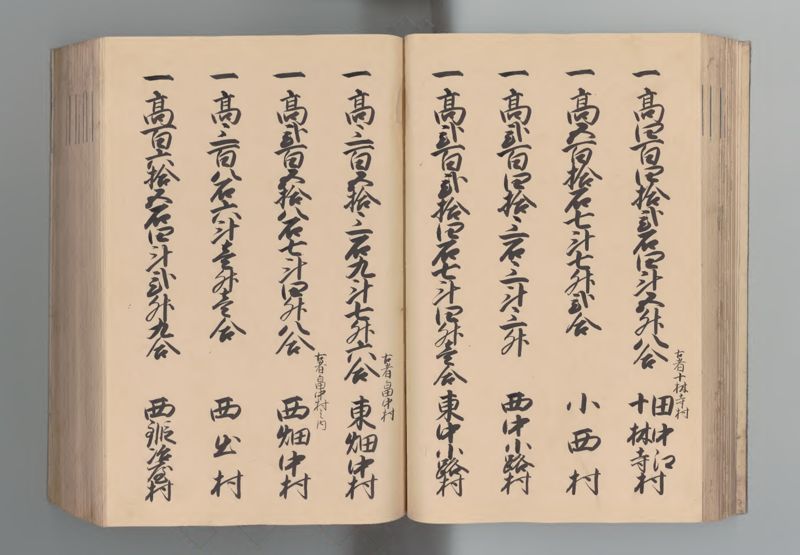 一髙四百四拾弐石四斗五升八合
古者十林寺村
田中江
十林寺村
一髙五百拾石七斗七升弐合 小西村
一髙弐百四拾三石三斗三升 西中小路村
一髙弐百弐拾四石七斗四升壱合 東中小路村
一髙三百五拾三石九斗七升六合 東畑中村
古者畠中村
一髙弐百五拾八石七斗四升八合 西畑中村
古者畠中村之内
一髙三百八石六斗壱升壱合 西出村
一髙百六拾五石四斗弐升九合 西鍛冶屋村